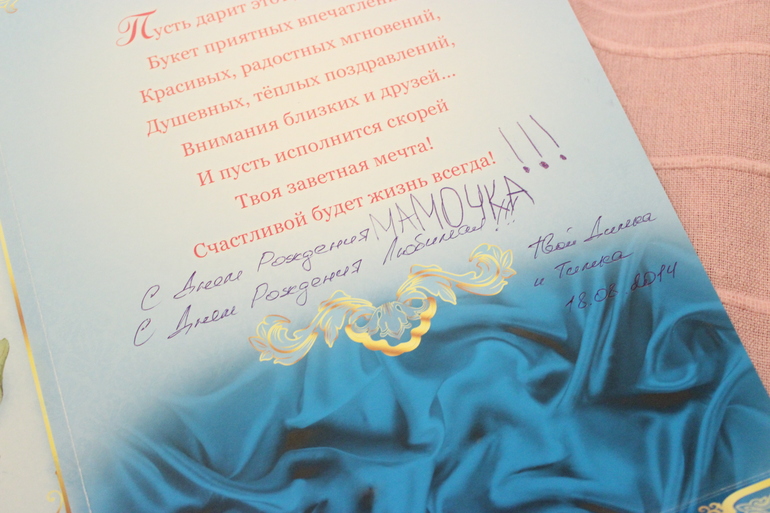 Пусть дарит этот
Букет приятных впечатлени
Красивых, радостных мгновений,
Душевных, тёплых поздравлений,
Внимания близких и друзей...
И пусть исполнится скорей
Твоя заветная мечта!
Счастливой будет жизнь всегда!
С Днем Рождения МАМОЧКА!!!
С Днем Рождения Любимая!!!
Твой Димка
и Тимка
18.08.2014